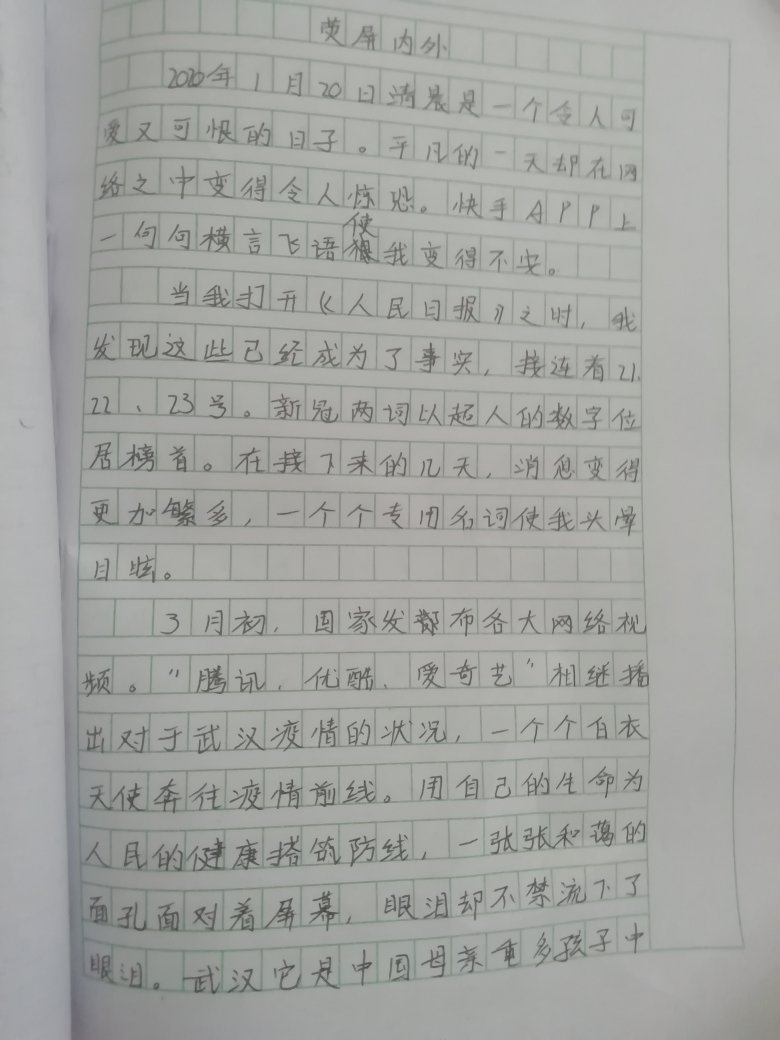 荧屏内外
2020年1月20日清晨是一个令人可
爱又可恨的日子。平凡的一天却在网
络之中变得令人惊恐。快手APP上
一句句横言飞语使我变得不安。
当我打开《人民日报》之时，我
发现这些已经成为了事实，接连着21、
22、23号。新冠两词以超人的数字位
居榜首。在接下来的几天，消息变得
更加繁多，一个个专用名词使我头晕
目眩。
3月初，国家发布各大网络视
频。"腾讯、优酷、爱奇艺"相继播
出对于武汉疫情的状况，一个个白衣
天使奔往疫情前线。用自己的生命为
人民的健康搭筑防线，一张张和蔼的
面孔面对着屏幕，眼泪却不禁流下了
眼泪。武汉它是中国母亲重多孩子中